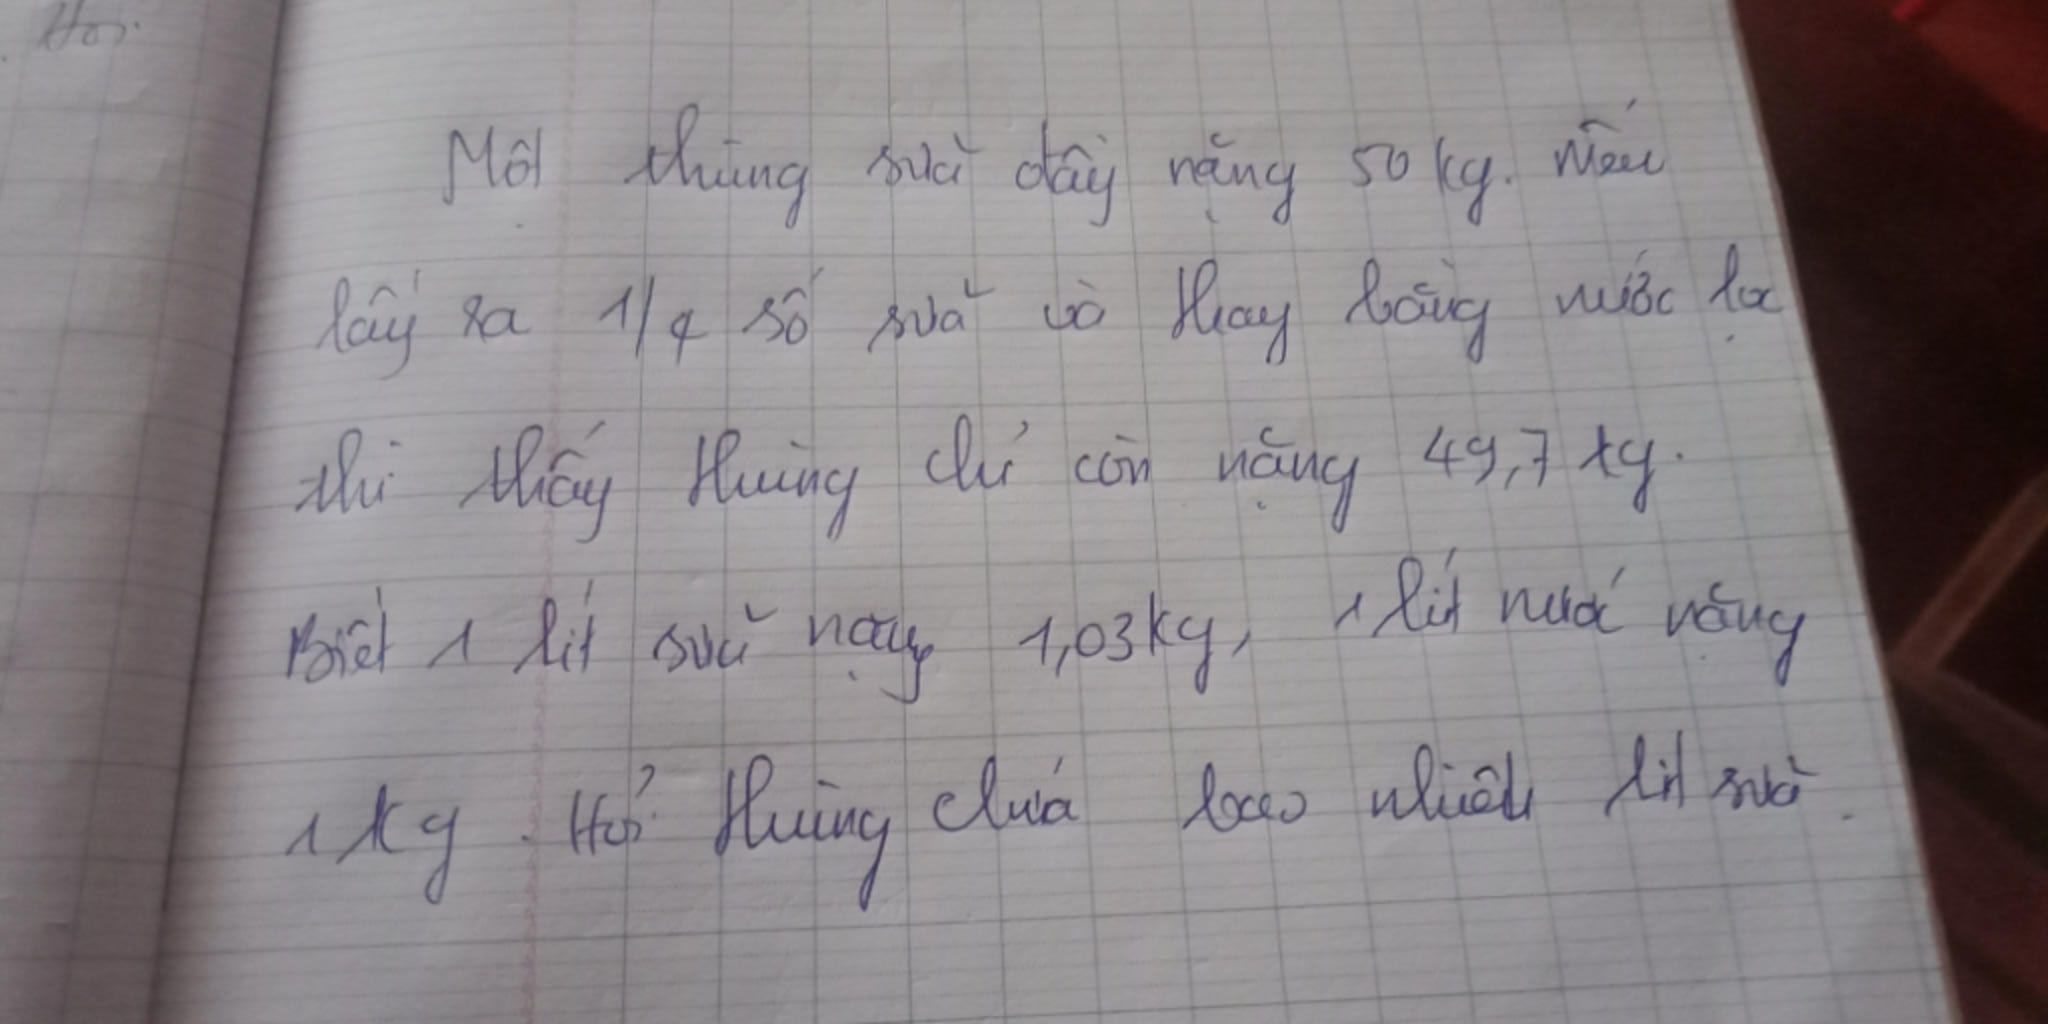 Hỏi
Một thùng sữa đầy nặng 50 kg. Nếu
lấy ra 1/4 số sữa và thay bằng nước lọc
thì thấy thùng chỉ còn nặng 49,7 kg.
Biết 1 lít sữa nặng 1,03kg, 1 lít nước nặng
1 kg. Hỏi thùng chứa bao nhiêu lít sữa.